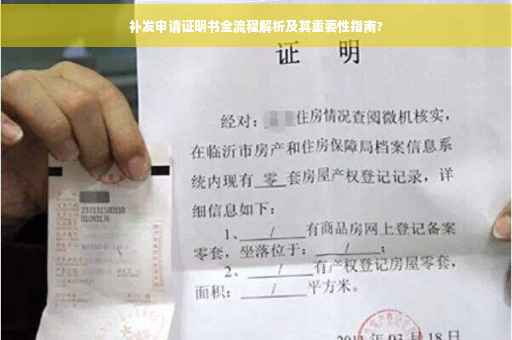 补发申请证明书全流程解析及其重要性指南?
证 明
经对: 住房情况查阅微机核实,
在临沂市房产和住房保障局档案信息系
统内现有 零 套房屋产权登记记录,详
细信息如下:
1、 / 有商品房网上登记备案
零套,坐落位于: / ;
2、 / 有产权登记房屋零套,
面积: / 平方米。
03 月 18 日